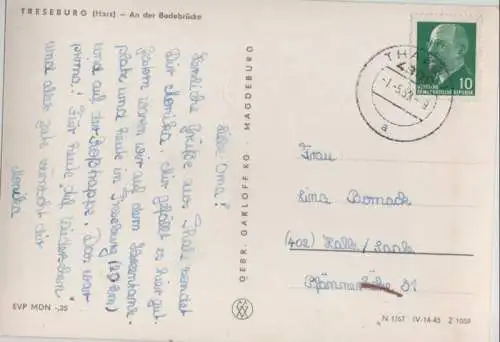 TRESEBURG (Harz) – An der Bodebrücke
Liebe Oma!
Herzliche Grüße aus Thale sendet
Dir Monika. Mir gefällt es hier gut.
Gestern waren wir auf dem Hexentanz-
platz und heute in Treseburg (20 km)
und auf der Roßtrappe. Das war
prima! Für heute auf Wiedersehen!
und alles Gute wünscht dir
Monika
EVP MDN -,25
GEBR. GARLOFF KG · MAGDEBURG
THALE
10
DEUTSCHE
DEMOKRATISCHE REPUBLIK
a
Frau
Lina Bornack
(402) Halle / Saale
Pfännerhöhe 31
N 1/67 IV-14-45 Z 1059